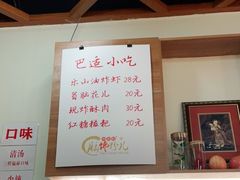 巴适小吃
乐山油炸虾 28元
首脑花儿 20元
现炸酥肉 30元
红糖糍粑 20元
口味
清汤